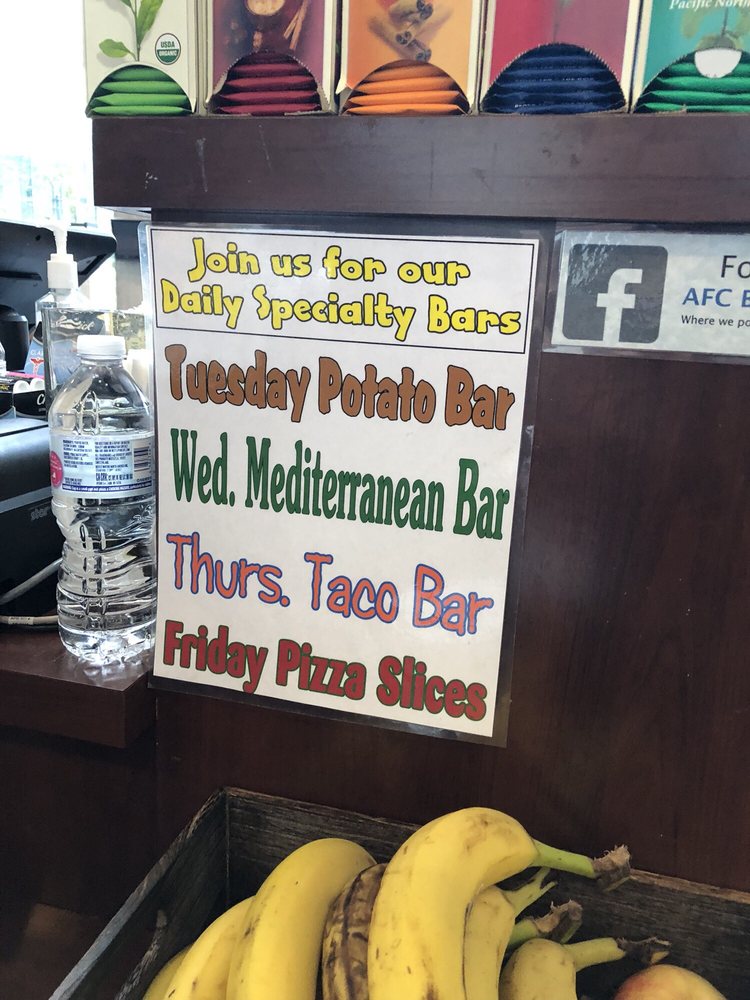 USDA
ORGANIC
Pacific North
Join us for our
Daily Specialty Bars
Tuesday Potato Bar
Wed. Mediterranean Bar
Thurs. Taco Bar
Friday Pizza Slices
f
Fo
AFC B
Where we po